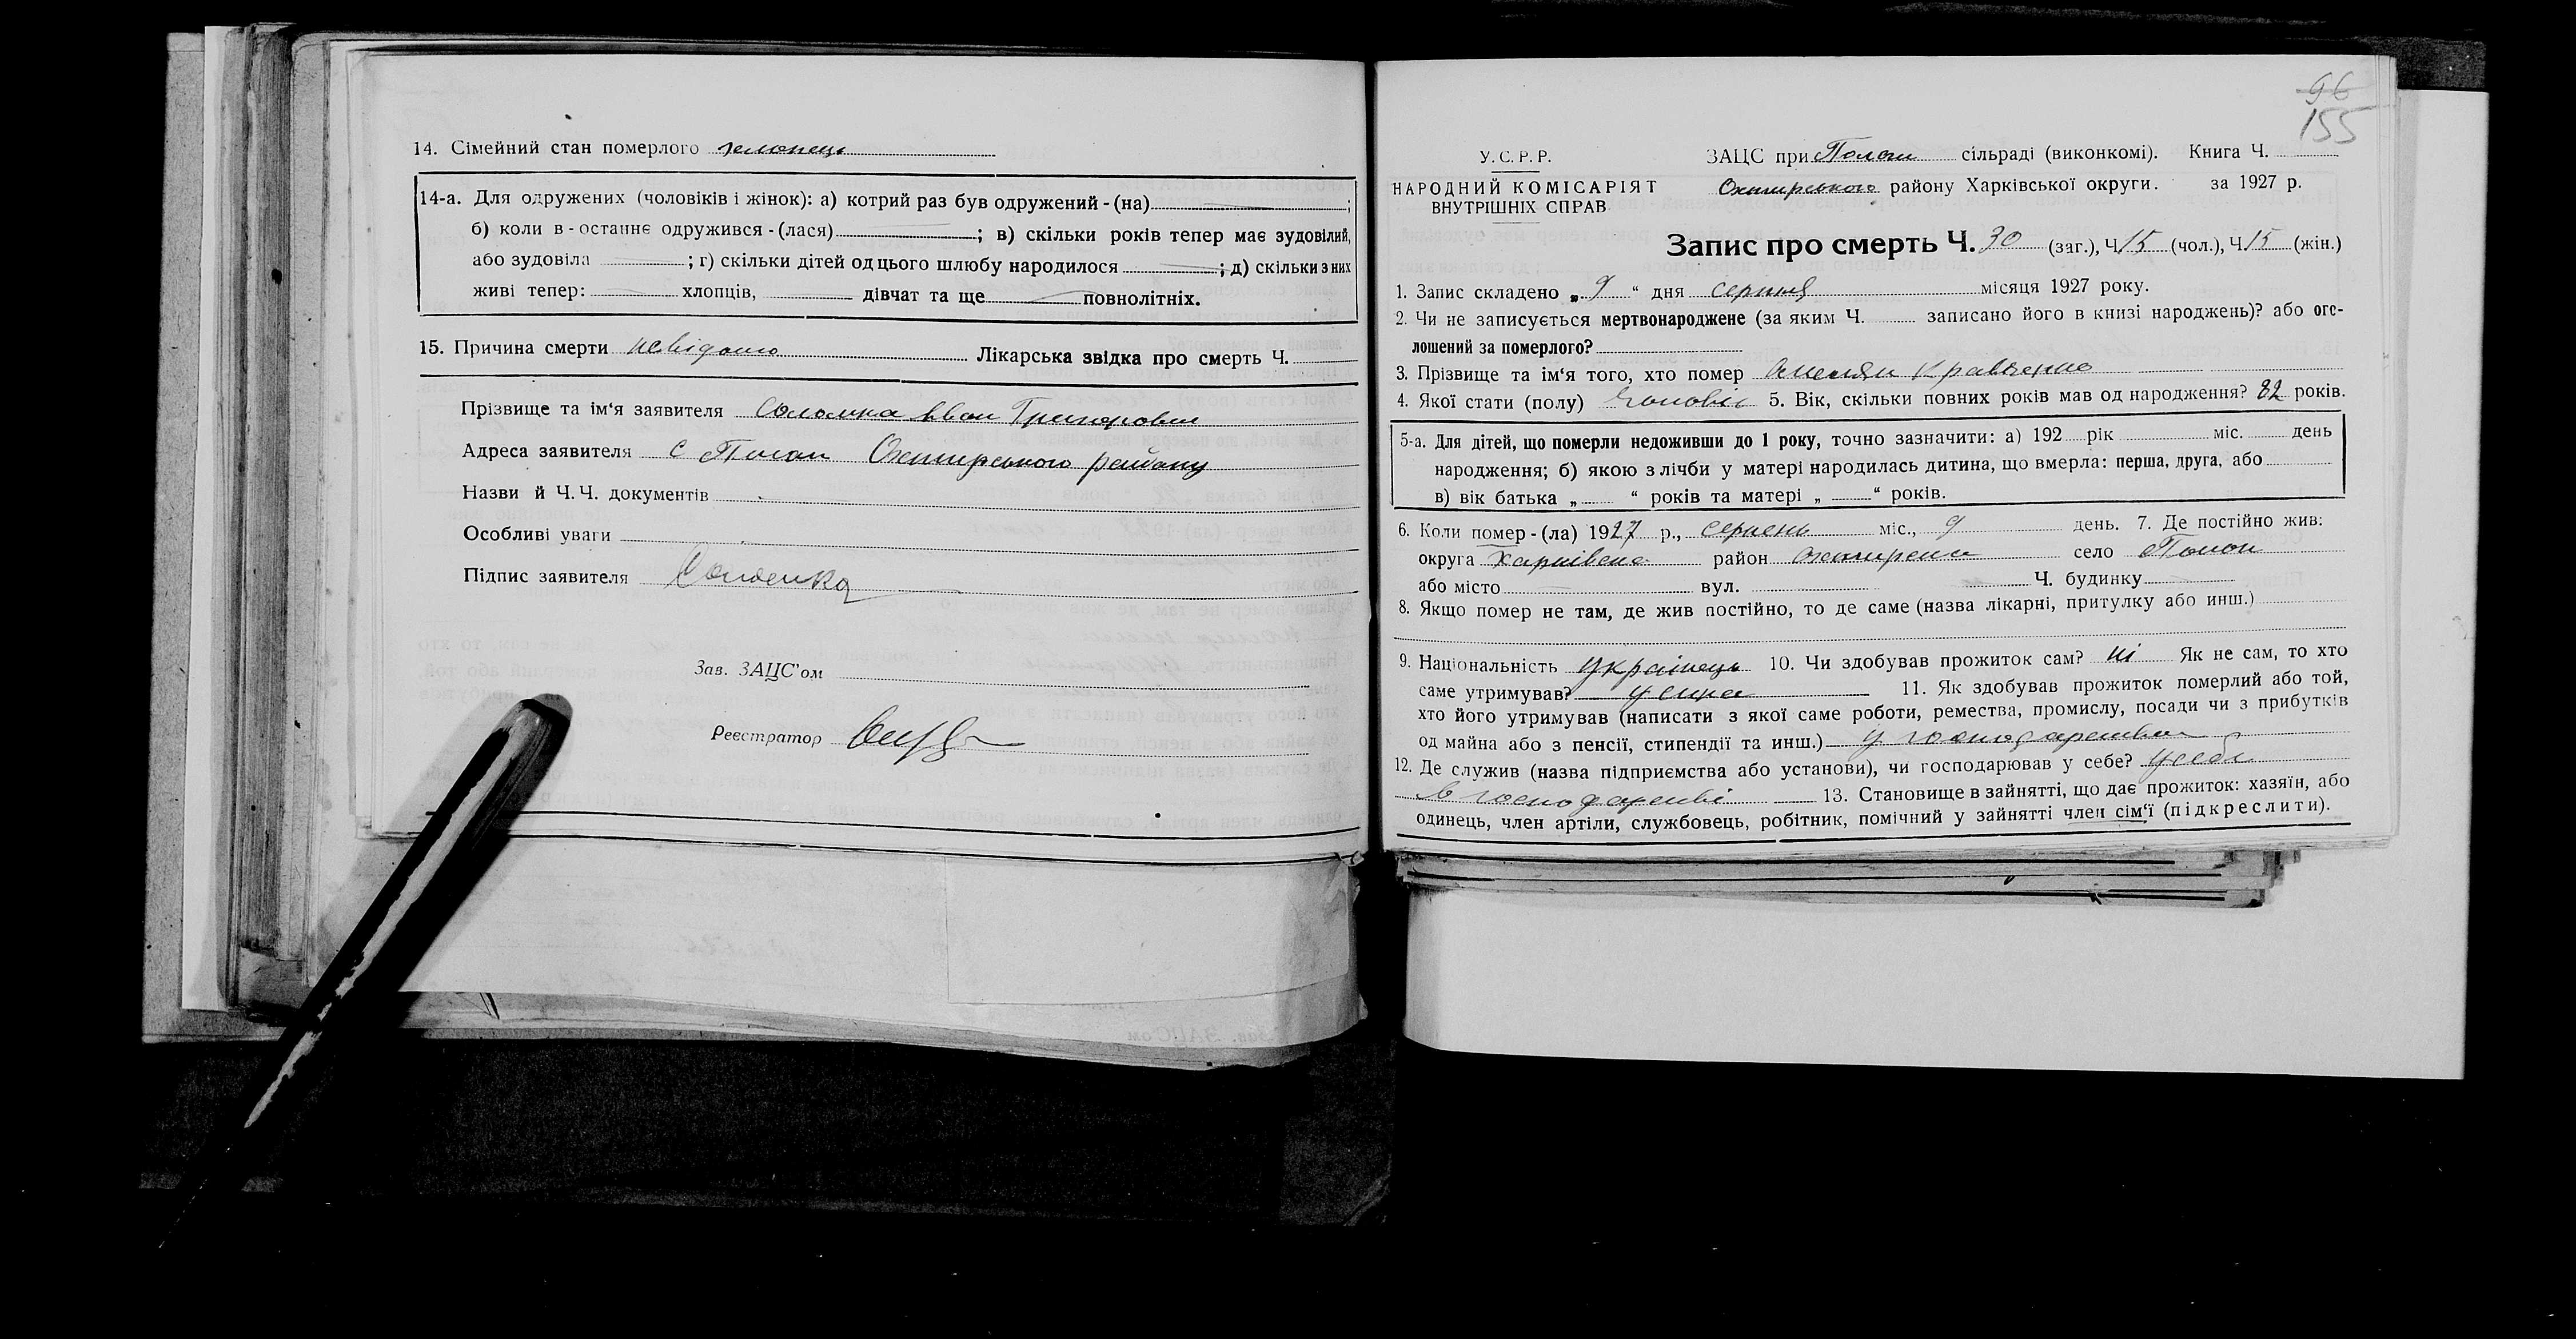 14. Сімейний стан померлого хлопець
14-а. Для одружених (чоловіків і жінок): а) котрий раз був одружений - (на) ;
б) коли в - останнє одружився - (лася) ; в) скільки років тепер має зудовілий,
або зудовіла ; г) скільки дітей од цього шлюбу народилося ; д) скільки з них
живі тепер: хлопців, дівчат та ще повнолітніх.
15. Причина смерти невідомо Лікарська звідка про смерть Ч.
Прізвище та ім'я заявителя Иван Григорович
Адреса заявителя с Охтирського району
Назви й Ч. Ч. документів
Особливі уваги
Підпис заявителя
Зав. ЗАЦС'ом
Реєстратор
96
155
У. С. Р. Р.
НАРОДНИЙ КОМІСАРІЯТ
ВНУТРІШНІХ СПРАВ
ЗАЦС при сільраді (виконкомі). Книга Ч.
Охтирського району Харківської округи. за 1927 р.
Запис про смерть Ч. 30 (заг.), Ч 15 (чол.), Ч 15 (жін.)
1. Запис складено „ 9 “ дня серпня місяця 1927 року.
2. Чи не записується мертвонароджене (за яким Ч. записано його в книзі народжень)? або ого-
лошений за померлого?
3. Прізвище та ім'я того, хто помер Кравченко
4. Якої стати (полу) 5. Вік, скільки повних років мав од народження? 82 років.
5-а. Для дітей, що померли недоживши до 1 року, точно зазначити: а) 192 рік міс. день
народження; б) якою з лічби у матері народилась дитина, що вмерла: перша, друга, або
в) вік батька „ “ років та матері „ “ років.
6. Коли помер - (ла) 1927 р., серпень міс., 9 день. 7. Де постійно жив:
округа район село
або місто вул. Ч. будинку
8. Якщо помер не там, де жив постійно, то де саме (назва лікарні, притулку або инш.)
9. Національність українець 10. Чи здобував прожиток сам? ні Як не сам, то хто
саме утримував? у сина 11. Як здобував прожиток померлий або той,
хто його утримував (написати з якої саме роботи, ремества, промислу, посади чи з прибутків
од майна або з пенсії, стипендії та инш.) у
12. Де служив (назва підприємства або установи), чи господарював у себе? у себе
в господарстві 13. Становище в зайнятті, що дає прожиток: хазяїн, або
одинець, член артіли, службовець, робітник, помічний у зайнятті член сім'ї (підкреслити).